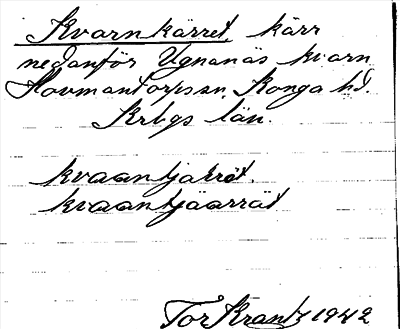 Kvarnkärret, kärr
nedanför Ugnanäs kvarn
Hovmantorps sn. Konga hd.
Krbgs län.
kvaantjakrät.
kvaantjäarrät
Tor Krantz 1942